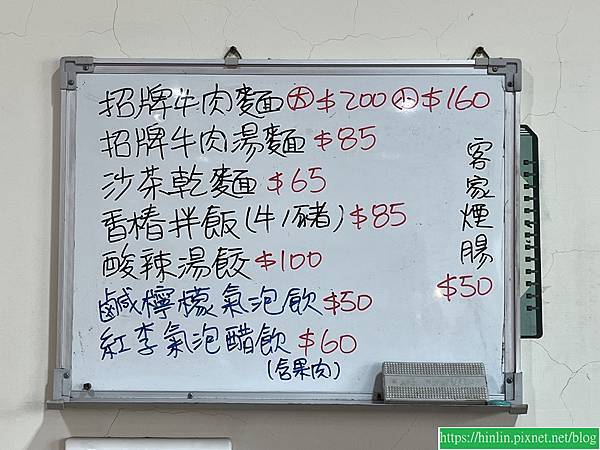 招牌牛肉麵大$200小$160
招牌牛肉湯麵 $85
沙茶乾麵 $65
香椿拌飯(牛/豬) $85
酸辣湯餃 $100
鹹檸檬氣泡飲 $50
紅李氣泡醋飲 $60
(含果肉)
客家煙腸
$50
https://hinlin.pixnet.net/blog